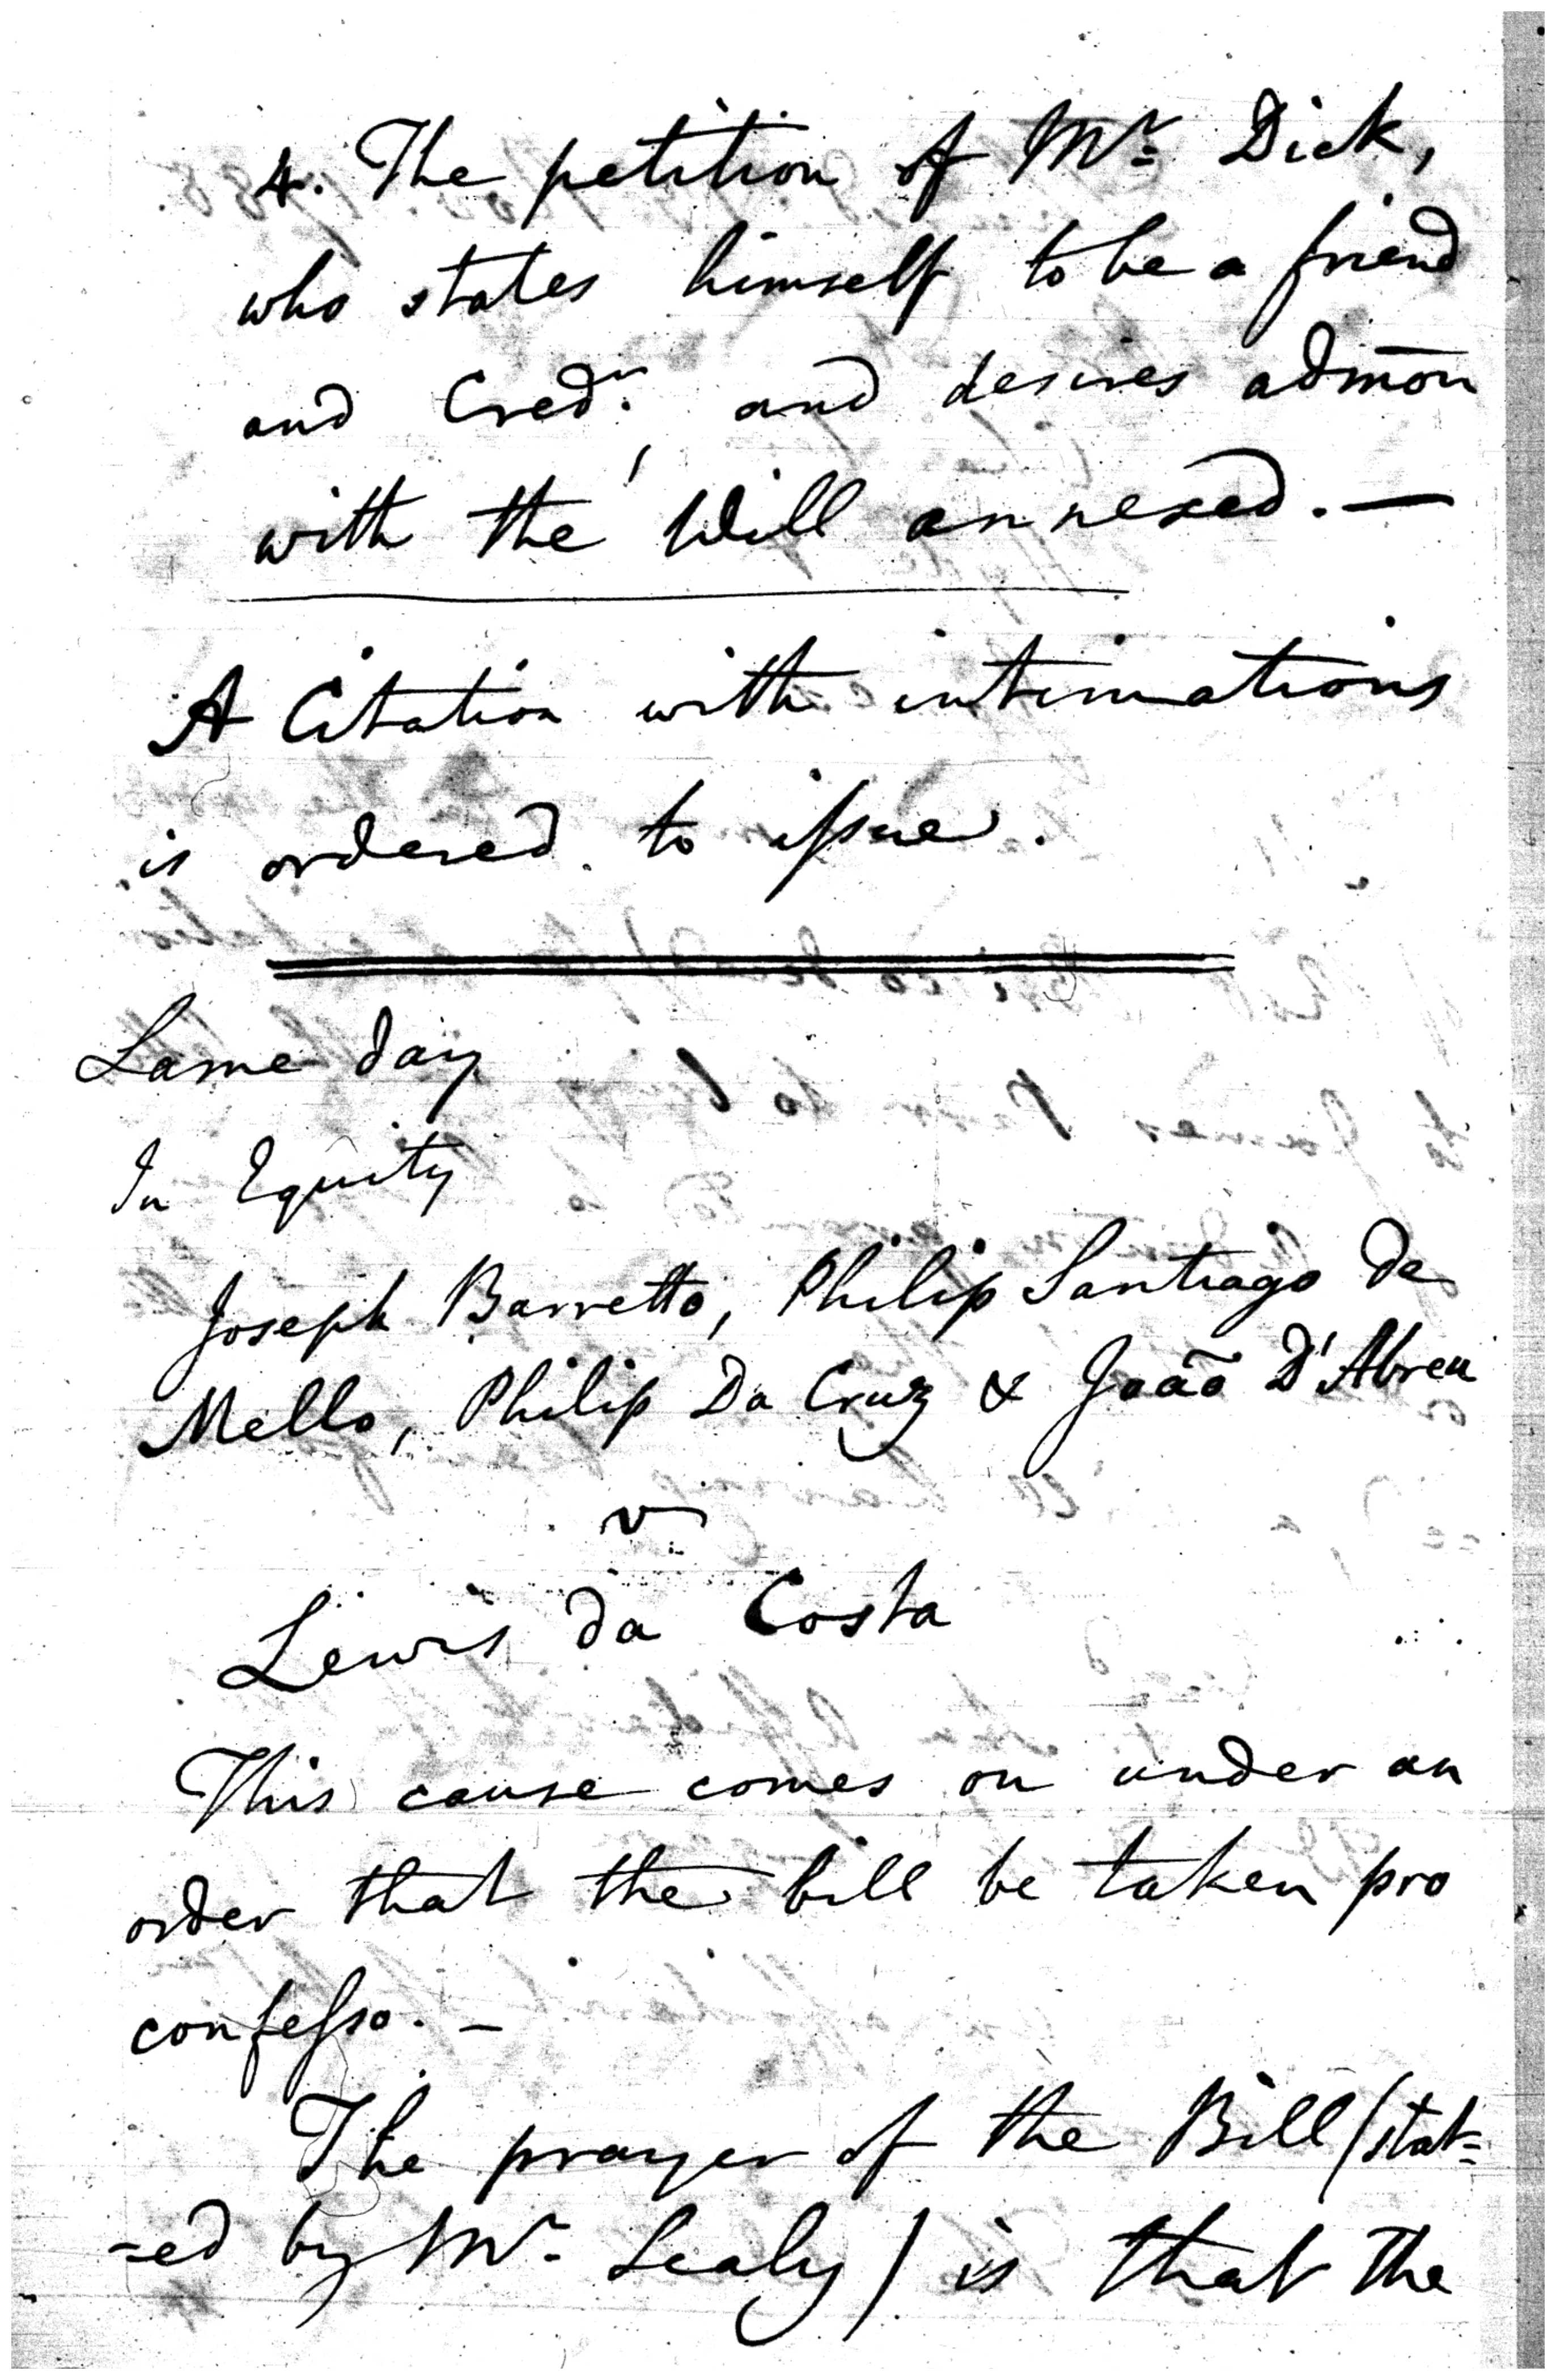 4. The petition of Mr. Dick,
who states himself to be a friend
and Credr., and desires admōn
with the Will annexed. —
A Citation with intimations
is ordered to issue.
Same day
In Equity
Joseph Barretto, Philip Santiago de
Mello, Philip Da Cruz & Joaõ D'Abreu
v
Lewis da Costa
This cause comes on under an
order that the bill be taken pro
confesso. -
The prayer of the Bill /stat=
-ed by Mr. Sealy/ is that the